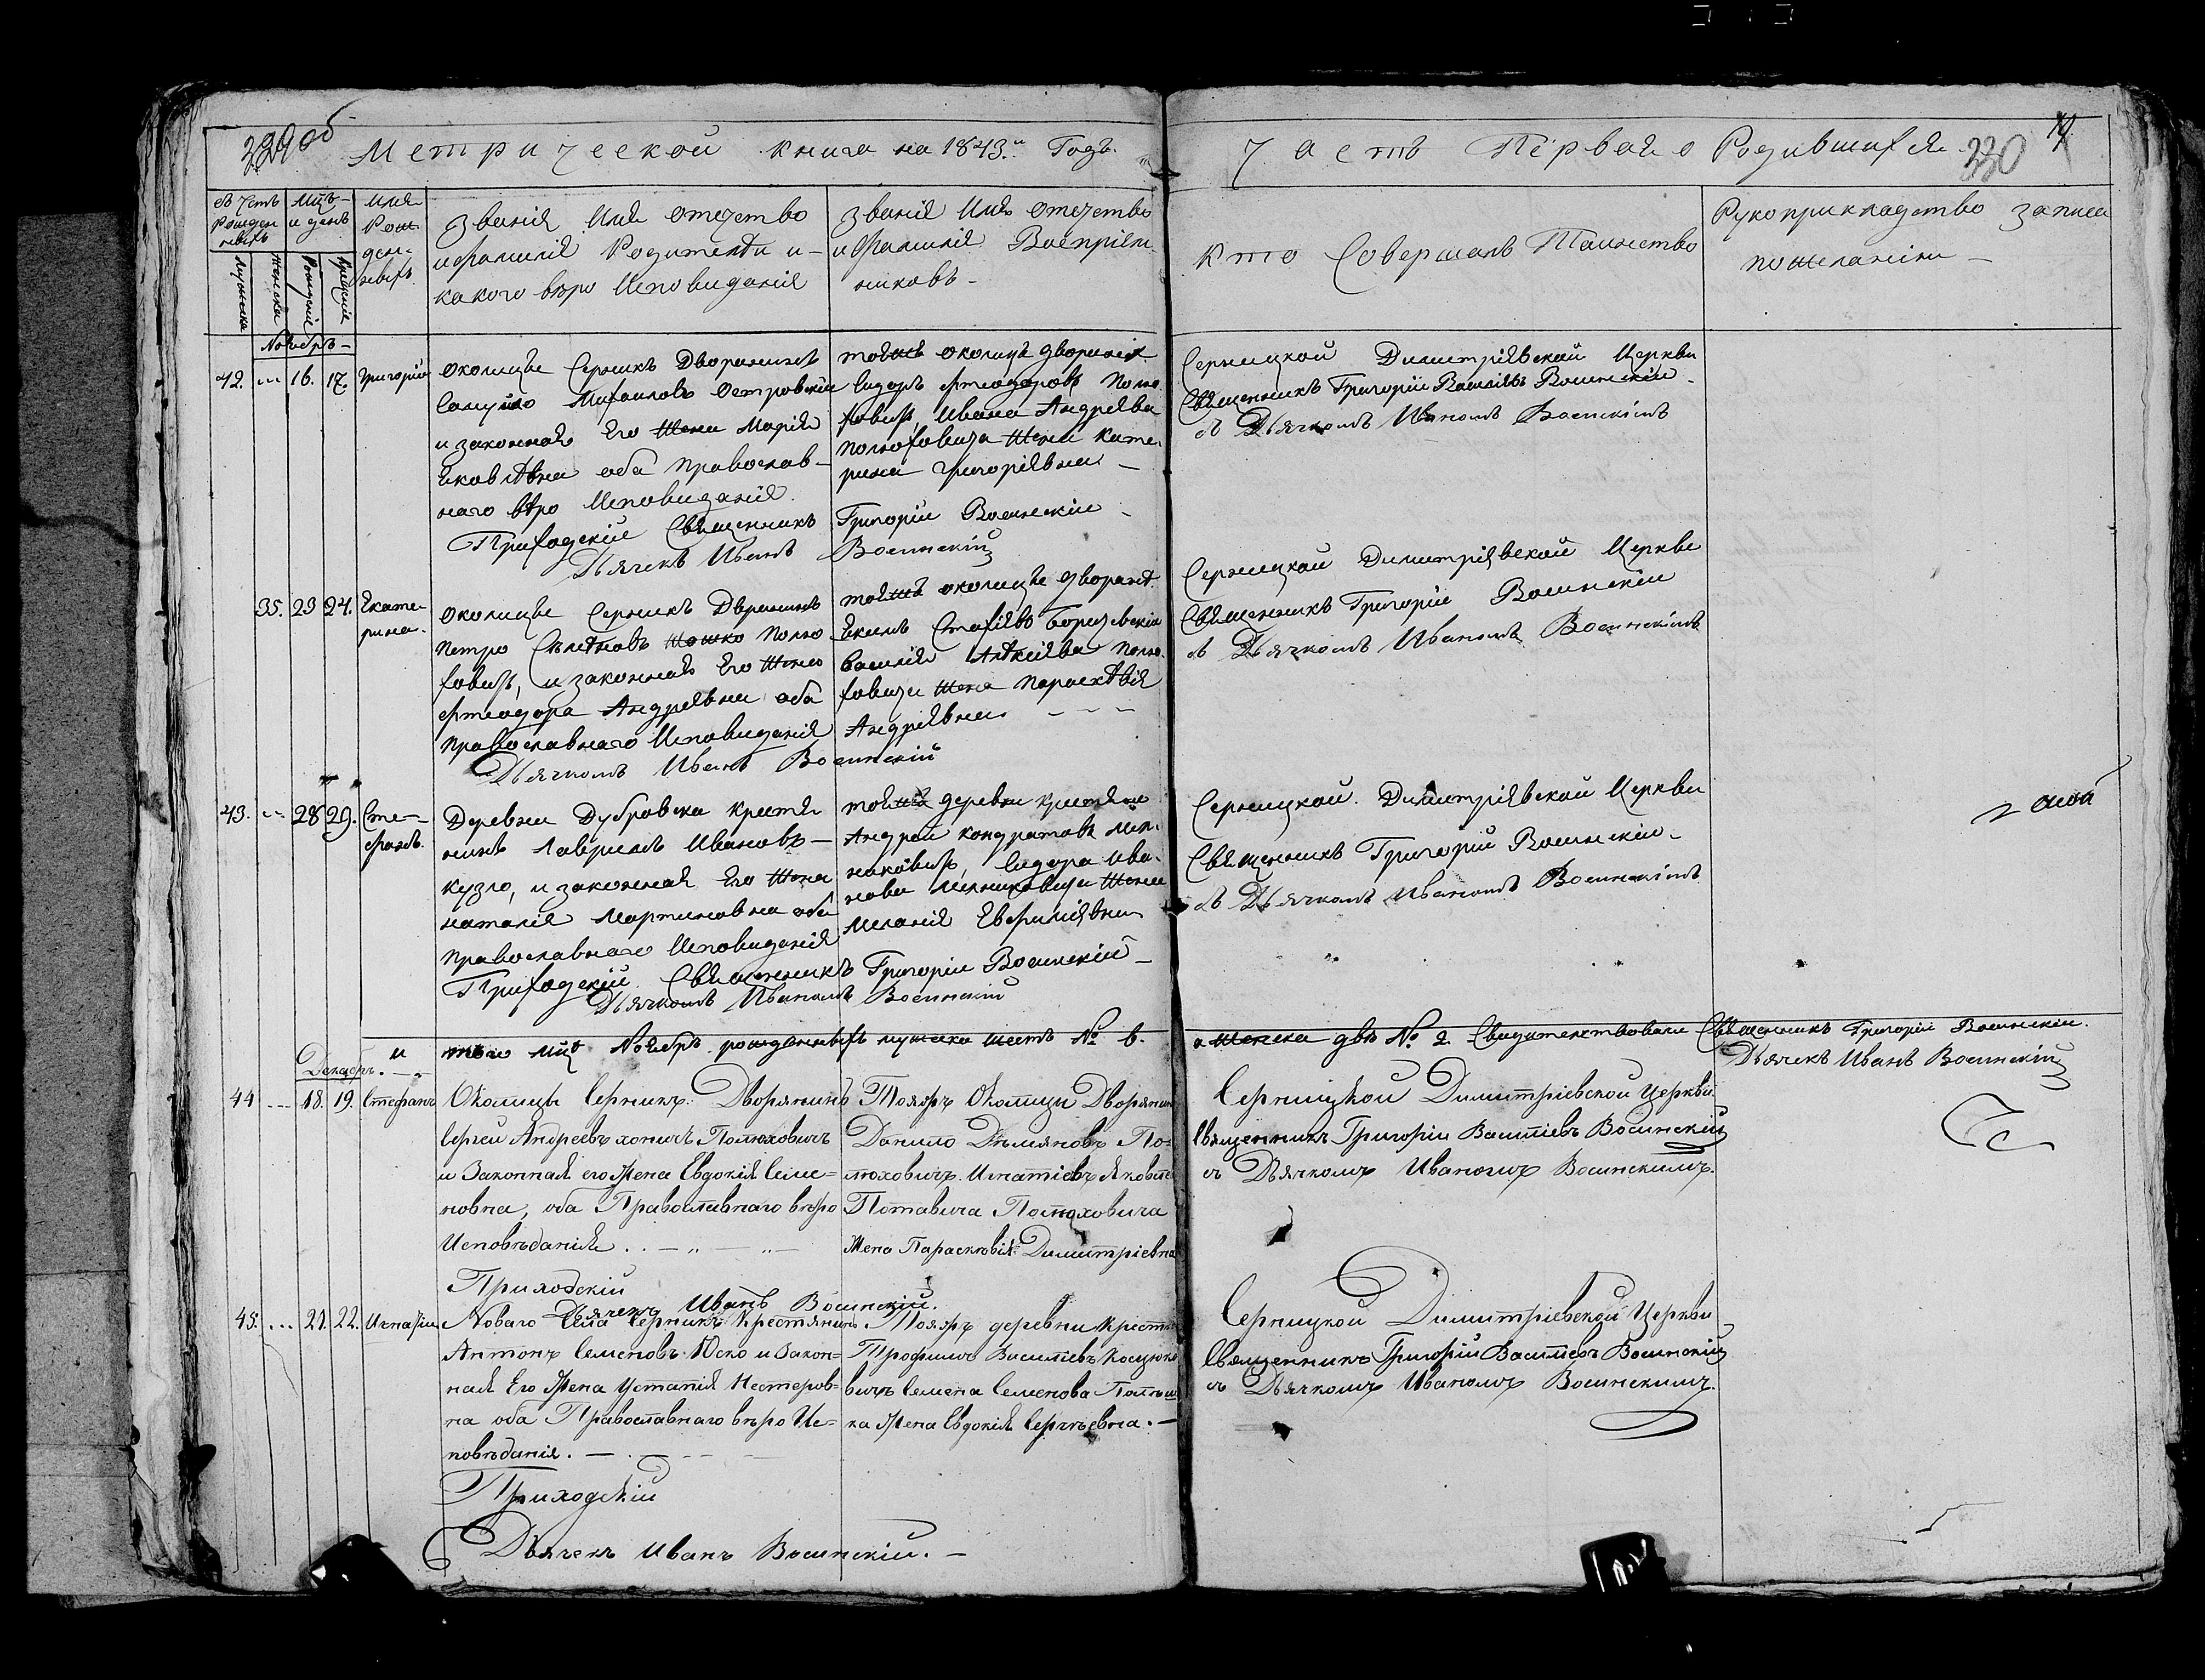 229 об
Метрической книга на 1843.й Годъ.
Часть Первая о Родившихся
230
Мцъ
и день
Имя
Рож
ден
ныхъ
Званія Имя отечество
и Фамилія Родителѣи и
какого вѣро Исповиданія
Званія Имя Отечество
и Фамилія Воспріем
никовъ
Кто Совершалъ Таинство
Рукоприкладство записа
по желанію
Мужеска
Женска
Рожденіе
Крещеніе
Ноябръ
42. 16. 17. Григорій
околицы Серникъ Дворанинъ
Михаиловъ Островскіи
и законная Его Жена Марія
Яковлѣвна оба Православ
наго вѣро Исповиданія
Приходскіи Священникъ Григоріи Восинскіи
Дьячекъ Иванъ Восинскій
тоейжъ околицы дворанинъ
Сидоръ Полю
ховичъ, Ивана Андреява
Полюховича Жена Кате
рина Григоріявна
Серницкой Димитріявской Церкви
Священникъ Григоріи Василіявъ Восинскіи
съ Дьячкомъ Иваномъ Восинскімъ
35. 23 24. Екате
рина.
околицы Серникъ Двранинъ
Петро Жошко Полю
ховичъ, и законная Его Жена
Андреявна оба
православнаго Исповиданія
Дьячкомъ Иванъ Восинскій
тоейжъ околицы дворанѣ
Якимъ
Василія Алѣксіява Полю
ховича Жена Параскѣвія
Андреявна
Серницкой Димитріявской Церкви
Священникъ Григоріи Восинскіи
съ Дьячкомъ Иваномъ Восинскімъ
43. 28 29. Сте
фанъ.
Деревни Дубровска кристя
нинъ Гавриилъ Ивановъ
Кузло, и законная Его Жена
Наталія Мартиновна оба
православнаго Исповиданія
Приходскій Священникъ Григоріи Восинскій
Дьячкомъ Иваномъ Восинскій
тойжѣ деревни кристяне
Андрей кондратовъ Мел
никовичъ, Сидора Ива
нова Мелниковича Жена
Меланія Евфиміявна
Серницкой Димитріявской Церкви
Священникъ Григорій Восинскіи
съ Дьячкомъ Иваномъ Восинскімъ
Ноябръ рожденныхъ мужеска шесть № 6.
а Женска двѣ № 2. Свидителствовали Священникъ Григоріи Восинскіи.
Дьячекъ Иванъ Восинскій
Декабръ.
44 18. 19. Стефанъ
Околицы Серникъ. Дворянинъ
Сергеи Андреевъ Полюховичъ
и Законная его Жена Евдокія Семе=
новна, оба Православнаго вѣро
Исповѣданія
Приходскіи
Дьячекъ Иванъ Восинскіи.
Тояжъ Околицы Дворянинъ
Данило Демяновъ По=
люховичъ. Игнатіевъ
Полюховича
Жена Параскѣвія Димитріевна
Серницкой Димитріевской Церкви
Священникъ Григоріи Василіевъ Восинскій
съ Дьячкомъ Иваномъ Восинскимъ.
45. 21. 22. Игнатіи
Новаго Села Серникъ Крестянинъ
Антонъ Семеновъ Юско и Закон=
ная Его Жена Устинія Нестеров=
на оба Православнаго вѣро Ис=
повѣданія.
Приходскій
Дьячекъ Иванъ Восинскіи.
Тояжъ деревни Крестя
Трофимъ Василіевъ
вичъ Семена Семенова
ка Жена Евдокія Сергѣевна.
Серницкой Димитріевской Церкви
Священникъ Григорій Василіевъ Восинскій
съ Дьячкомъ Иваномъ Восинскимъ.